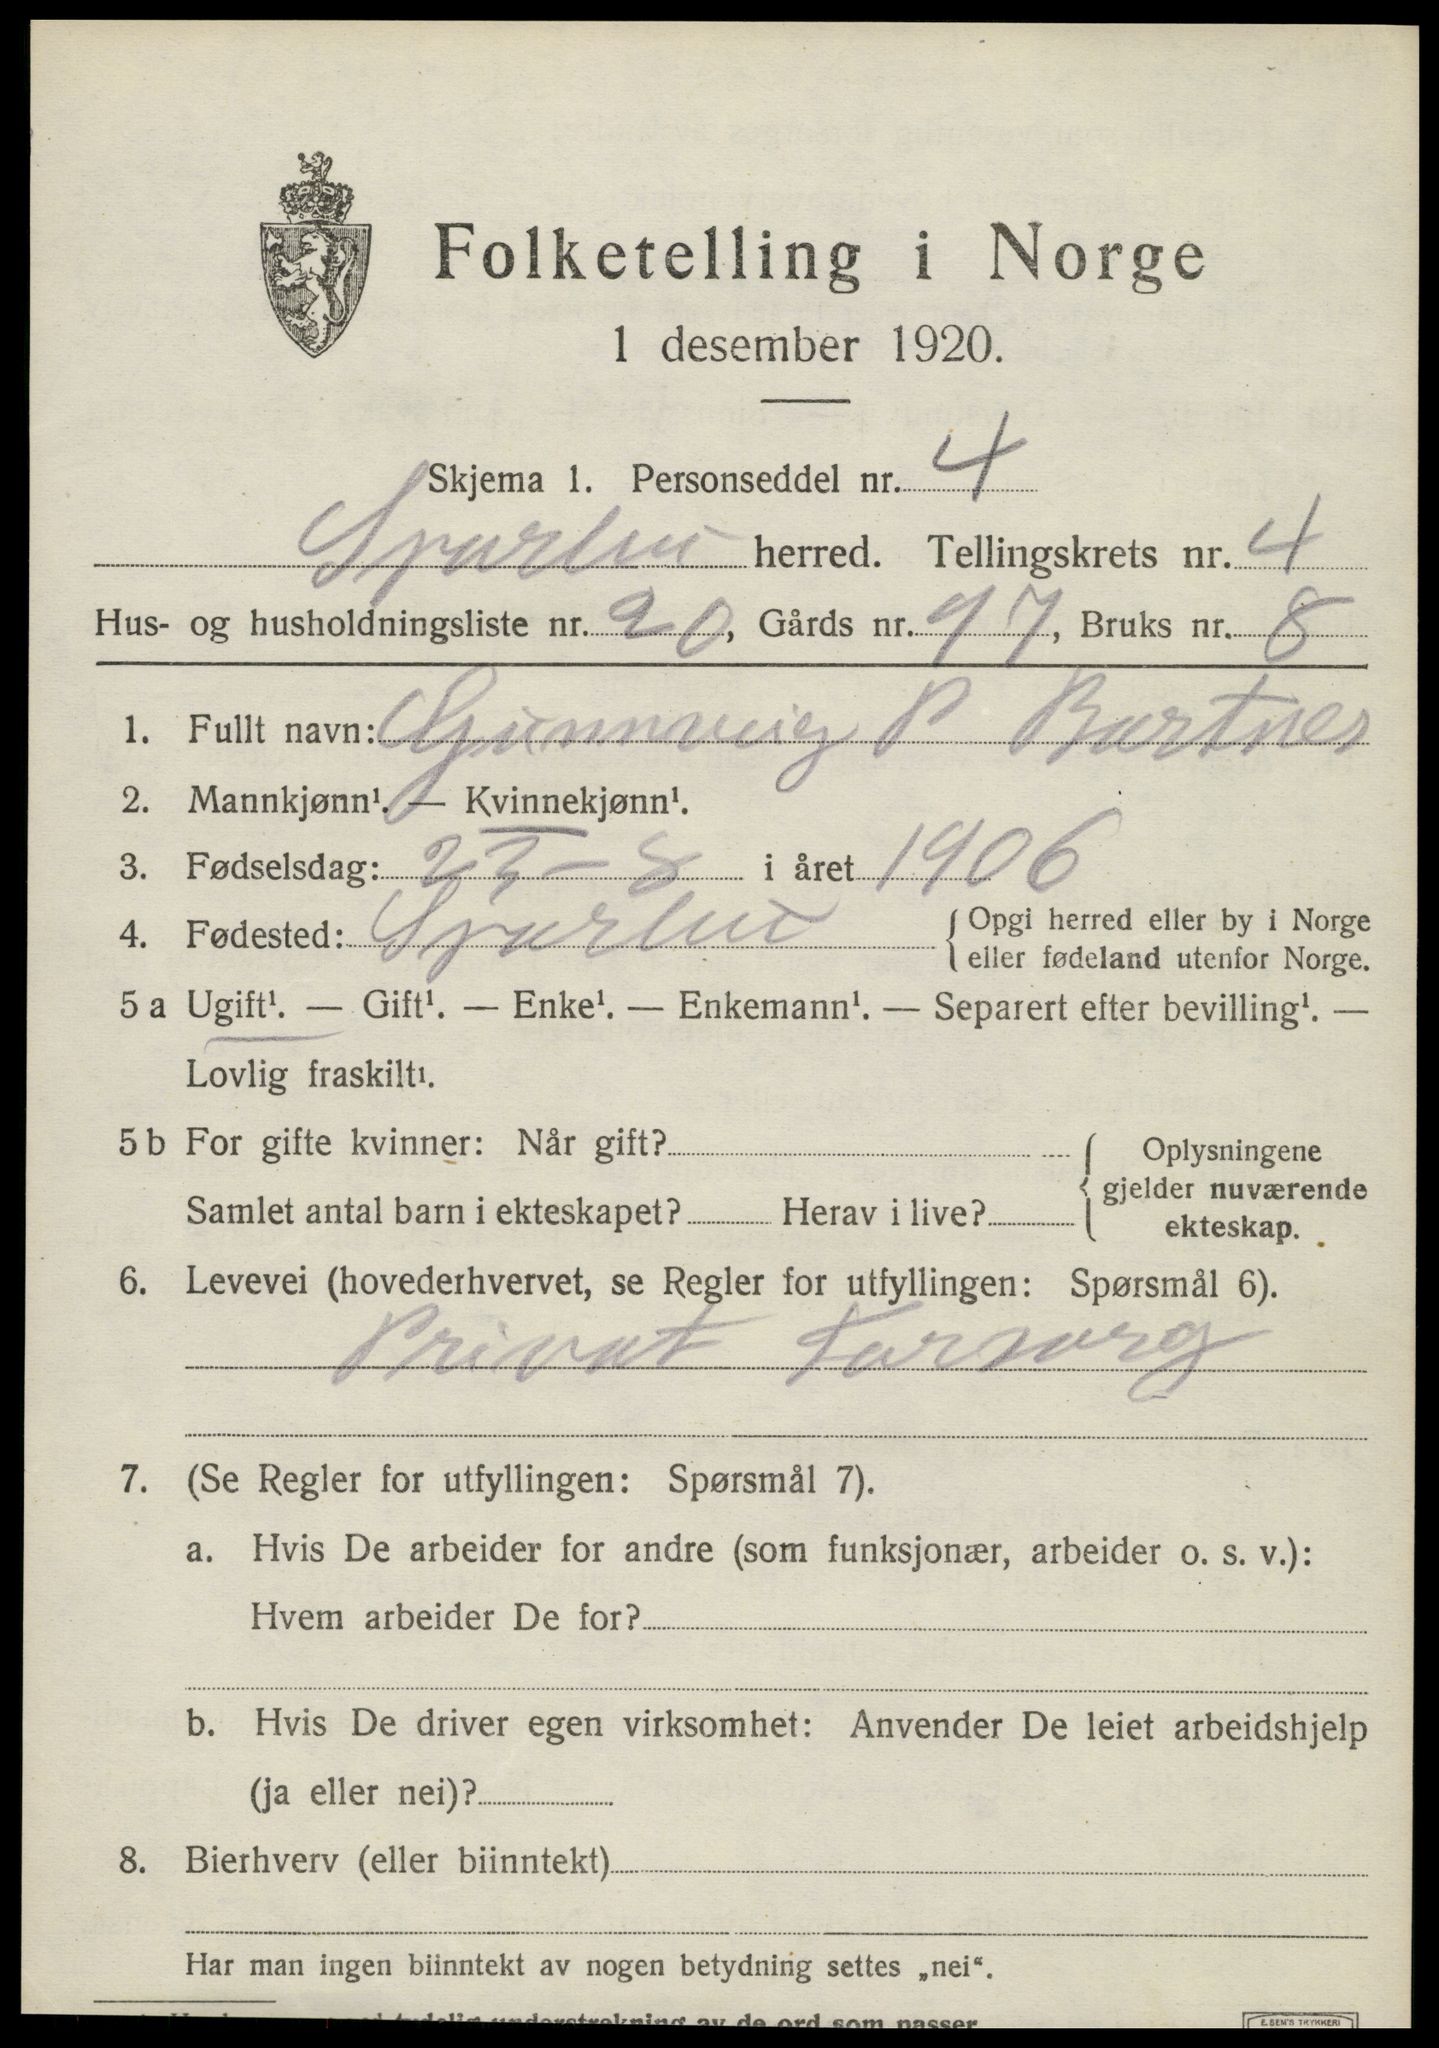 Folketelling i Norge
1 desember 1920.
Skjema 1. Personseddel nr. 4
Sparbu herred. Tellingskrets nr. 4
Hus- og husholdningsliste nr. 20, Gårds nr. 97, Bruks nr. 8
1. Fullt navn: Gunnveig P Bartnes
2. Mannkjønn¹. — Kvinnekjønn¹.
3. Fødselsdag: 23-8 i året 1906
4. Fødested: Sparbu { Opgi herred eller by i Norge
eller fødeland utenfor Norge.
5 a Ugift¹. — Gift¹. — Enke¹. — Enkemann¹. — Separert efter bevilling¹. —
Lovlig fraskilt¹.
5 b For gifte kvinner: Når gift? { Oplysningene
gjelder nuværende
Samlet antal barn i ekteskapet? Herav i live? ekteskap.
6. Levevei (hovederhvervet, se Regler for utfyllingen: Spørsmål 6).
Privat Forsorg
7. (Se Regler for utfyllingen: Spørsmål 7).
a. Hvis De arbeider for andre (som funksjonær, arbeider o. s. v.):
Hvem arbeider De for?
b. Hvis De driver egen virksomhet: Anvender De leiet arbeidshjelp
(ja eller nei)?
8. Bierhverv (eller biinntekt)
Har man ingen biinntekt av nogen betydning settes „nei“.
tydelig understrekning av de ord som passer
E. SEM'S TRYKKERI